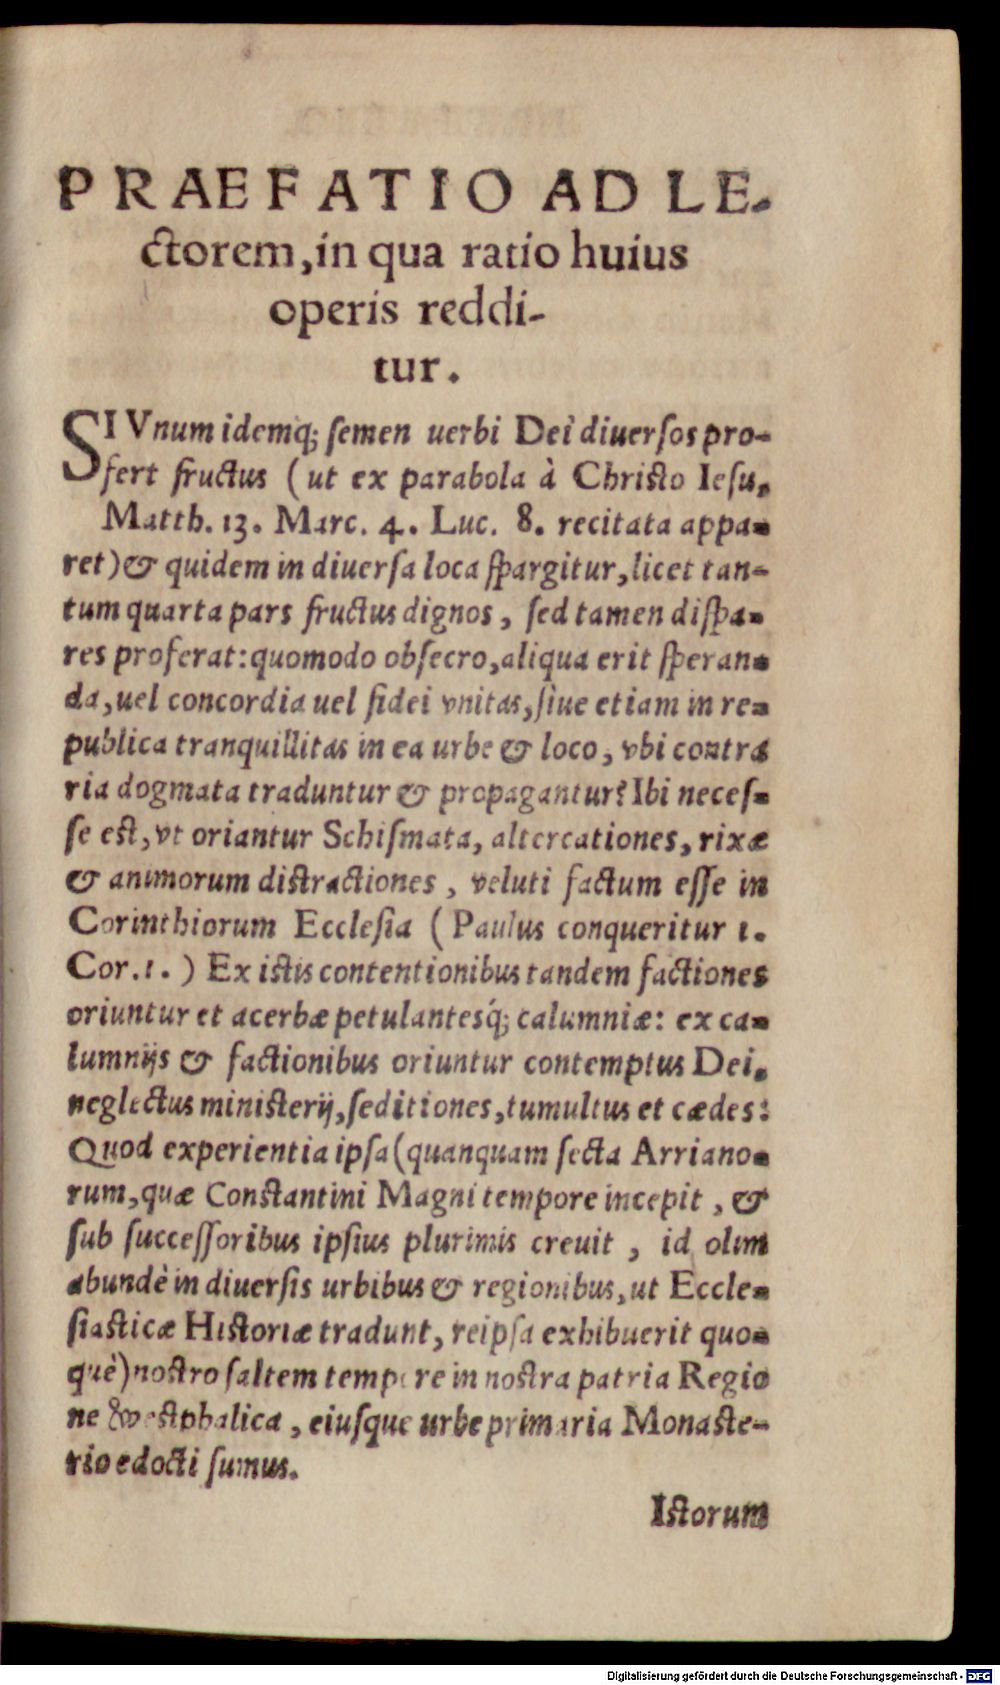 PRAEFATIO AD LE-
ctorem, in qua ratio huius
operis reddi-
tur.
SI Vnum idemq; ſemen uerbi Dei diuerſos pro-
fert fructus (ut ex parabola à Chriſto Ieſu,
Matth. 13. Marc. 4. Luc. 8. recitata appa-
ret) & quidem in diuerſa loca ſpargitur, licet tan-
tum quarta pars fructus dignos, ſed tamen diſpa-
res proferat: quomodo obſecro, aliqua erit ſperan-
da, uel concordia uel fidei vnitas, ſiue etiam in re-
publica tranquillitas in ea urbe & loco, vbi contra
ria dogmata traduntur & propagantur? Ibi neceſ-
ſe eſt, vt oriantur Schiſmata, altercationes, rixæ
& animorum diſtractiones, veluti factum eſſe in
Corinthiorum Eccleſia (Paulus conqueritur 1.
Cor. 1.) Ex iſtis contentionibus tandem factiones
oriuntur et acerbæ petulantesq́; calumniæ: ex ca-
lumnijs & factionibus oriuntur contemptus Dei,
neglectus miniſterij, ſeditiones, tumultus et cædes:
Quod experientia ipſa (quanquam ſecta Arriano-
rum, quæ Conſtantini Magni tempore incepit, &
ſub ſucceſſoribus ipſius plurimis creuit, id olim
abundè in diuerſis urbibus & regionibus, ut Eccle-
ſiaſticæ Hiſtoriæ tradunt, reipſa exhibuerit quo-
què) noſtro ſaltem tempore in noſtra patria Regio
ne Weſtphalica, eiuſque urbe primaria Monaſte-
rio edocti ſumus.
Iſtorum
Digitalisierung gefördert durch die Deutsche Forschungsgemeinschaft - DFG